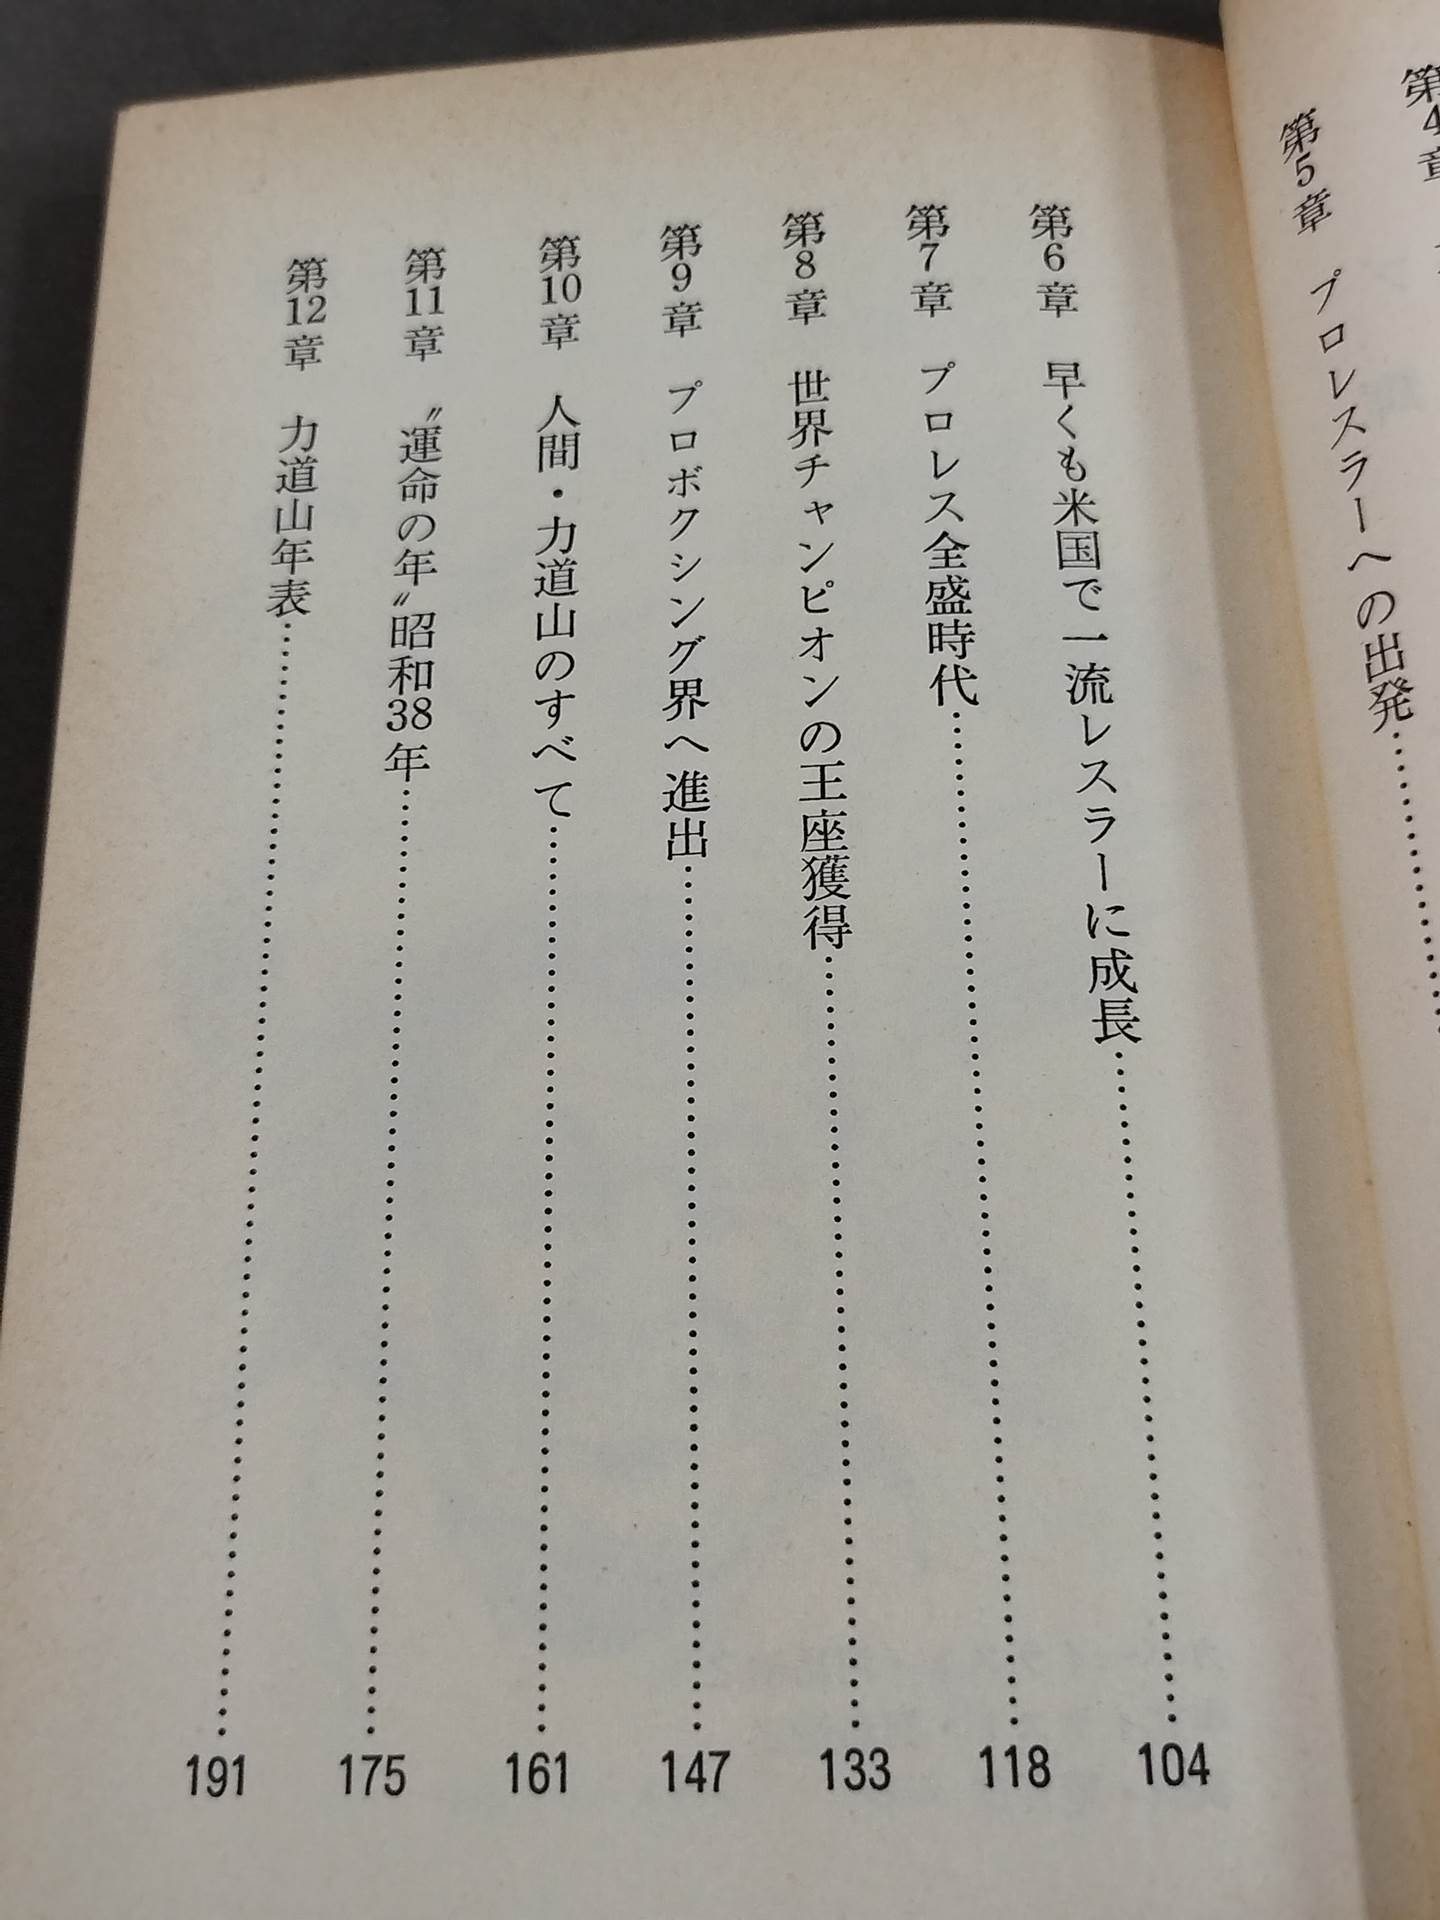 第4章
第5章 プロレスラーへの出発……
第6章 早くも米国で一流レスラーに成長……104
第7章 プロレス全盛時代……118
第8章 世界チャンピオンの王座獲得……133
第9章 プロボクシング界へ進出……147
第10章 人間・力道山のすべて……161
第11章 〝運命の年〟昭和38年……175
第12章 力道山年表……191